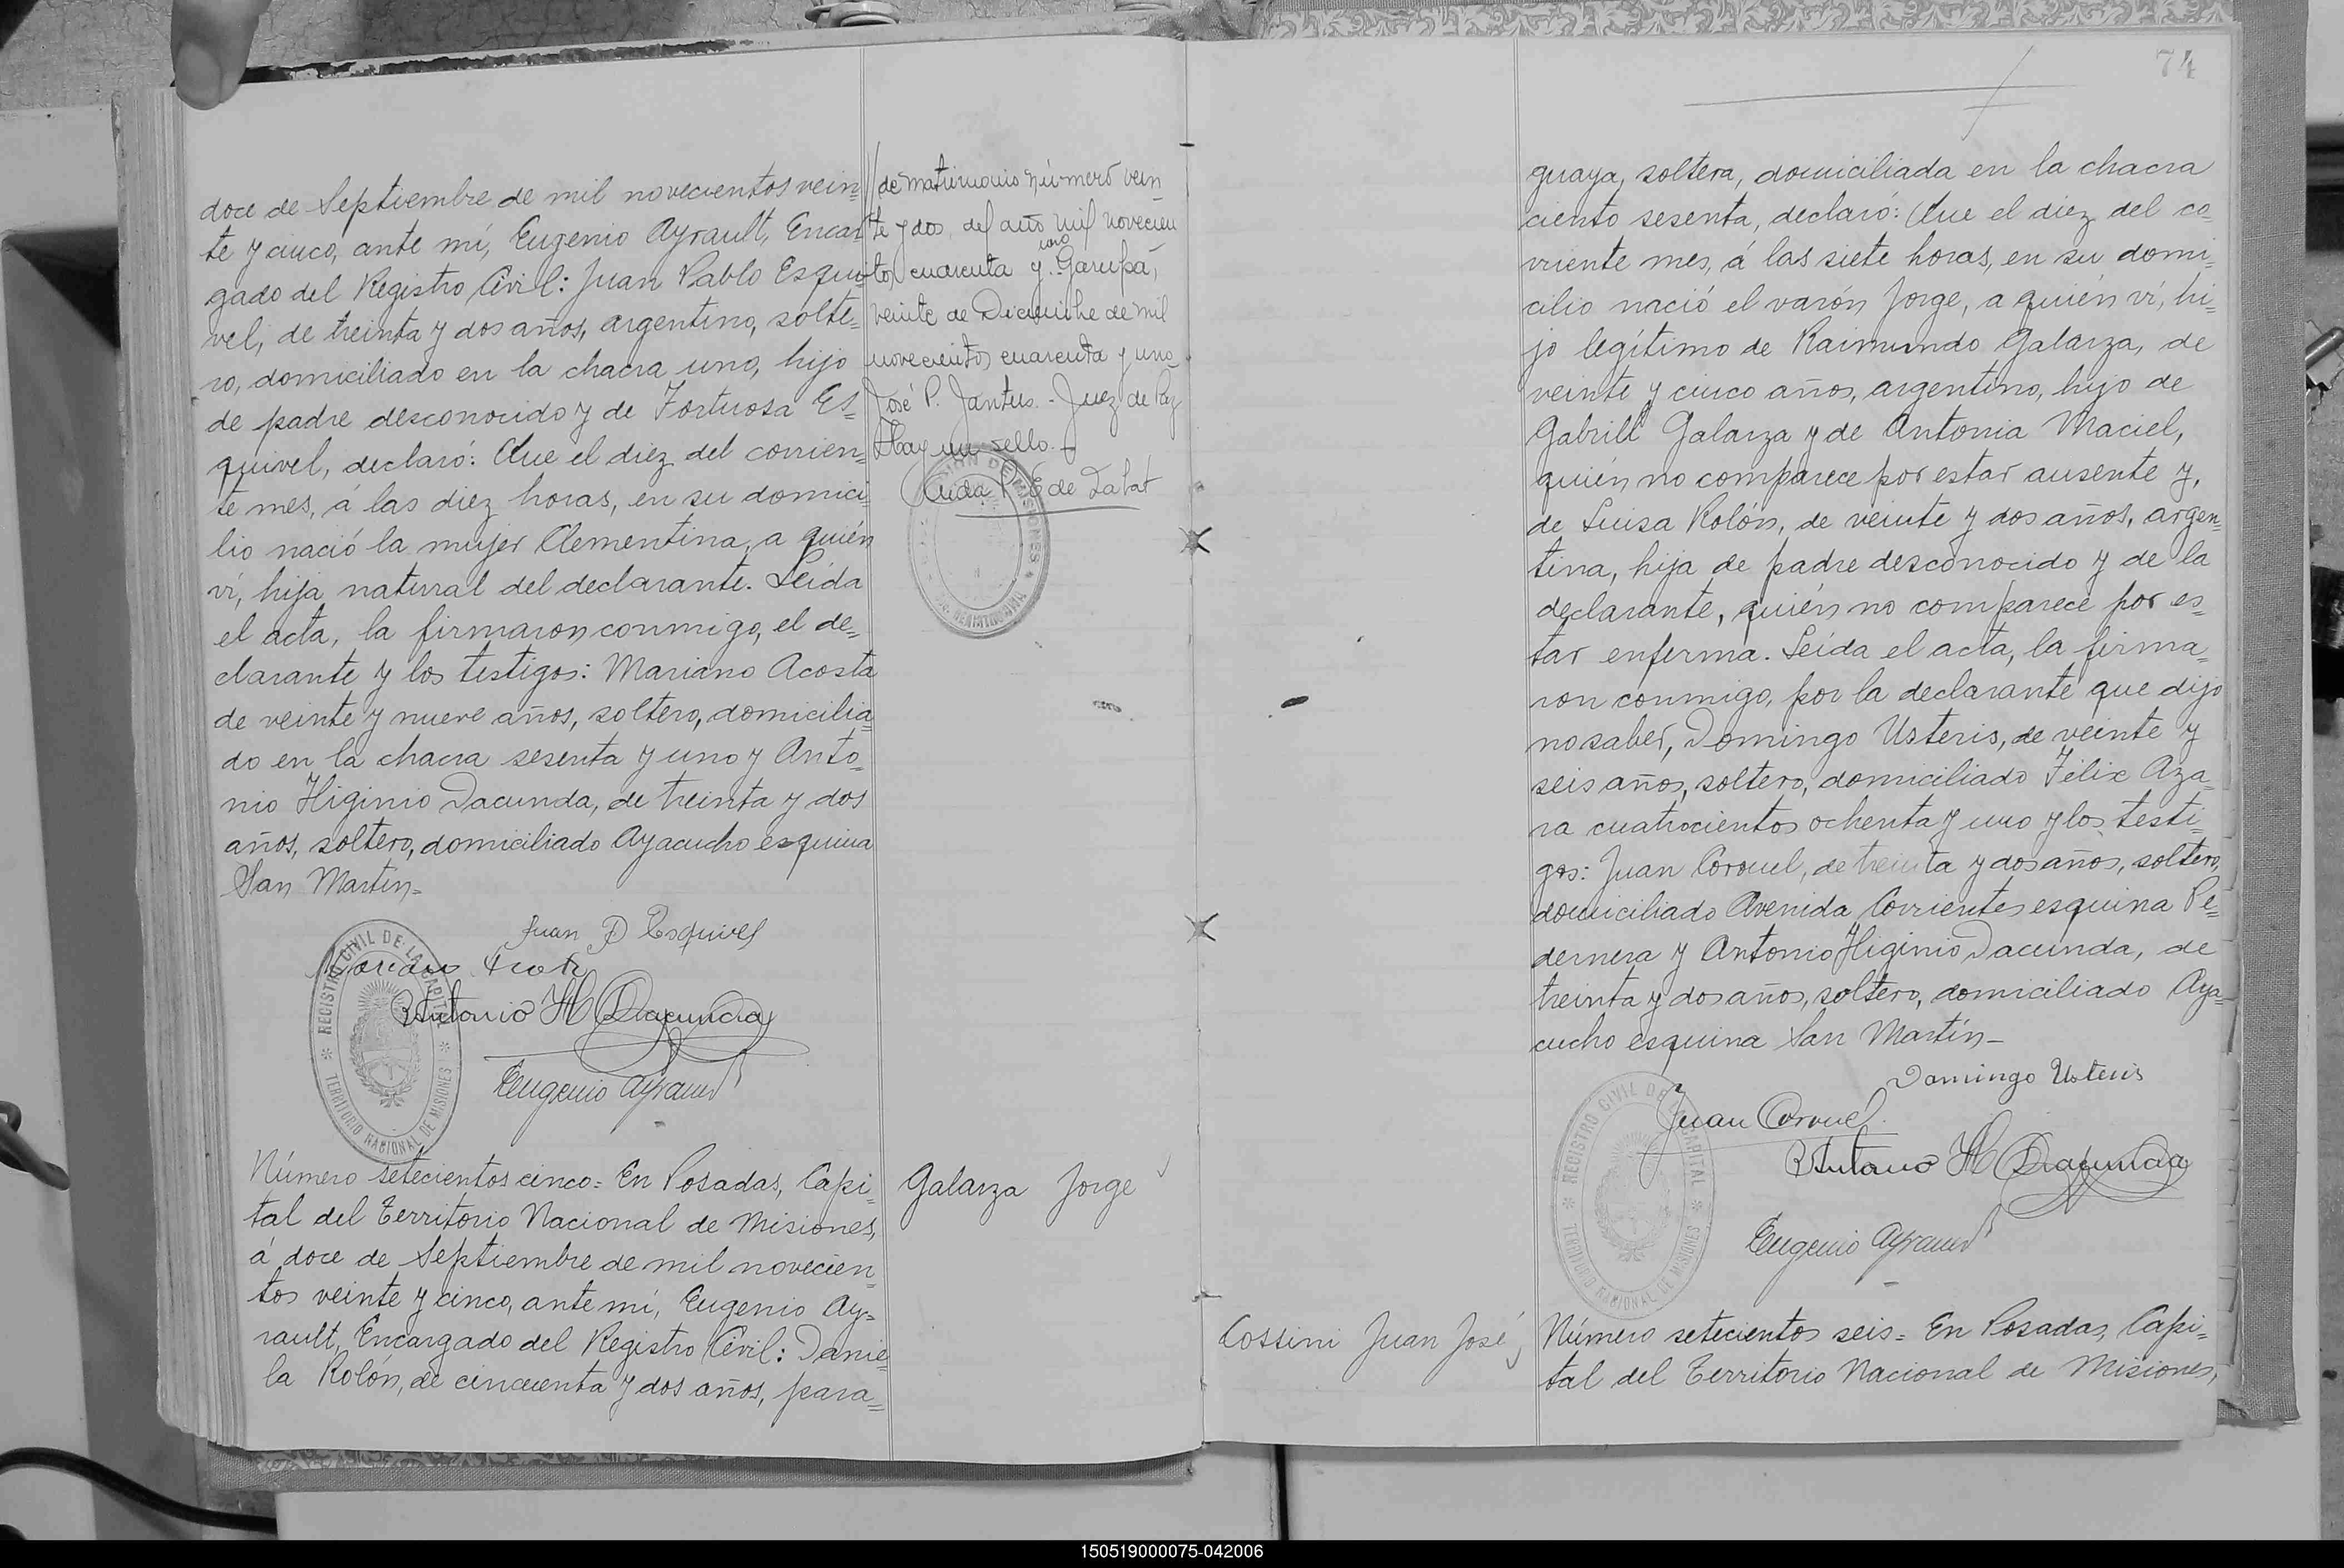 doce de Septiembre de mil novecientos vein=
te y cinco, ante mí, Eugenio Ayrault, Encar=
gado del Registro Civil: Juan Pablo Esqui=
vel, de treinta y dos años, argentino, solte=
ro, domiciliado en la chacra uno, hijo
de padre desconocido y de Fortuosa Es=
quivel, declaró: Que el diez del corrien=
te mes, á las diez horas, en su domici=
lio nació la mujer Clementina, a quién
ví, hija natural del declarante. Leída
el acta, la firmaron conmigo, el de=
clarante y los testigos: Mariano Acosta
de veinte y nueve años, soltero, domicilia=
do en la chacra sesenta y uno y Anto=
nio Higinio Dacunda, de treinta y dos
años, soltero, domiciliado Ayacucho esquina
San Martín=
Juan P Esquivel
Antonio H Dacunda
Eugenio Ayrault
REGISTRO CIVIL DE LA CAPITAL
TERRITORIO NACIONAL DE MISIONES
// de matrimonio número vein
te y dos del año mil novecien
tos cuarenta y uno. Garupá,
veinte de Diciembre de mil
novecientos cuarenta y uno.
José P. Jantus. - Juez de Paz
Hay un sello. -
de Labat
Número setecientos cinco= En Posadas, Capi=
tal del Territorio Nacional de Misiones,
á doce de Septiembre de mil novecien=
tos veinte y cinco, ante mí, Eugenio Ay=
rault, Encargado del Registro Civil: Danie=
la Rolón, de cincuenta y dos años, para=
Galarza Jorge
74
guaya, soltera, domiciliada en la chacra
ciento sesenta, declaró: Que el diez del co=
rriente mes, á las siete horas, en su domi=
cilio nació el varón Jorge, a quién ví, hi=
jo legítimo de Raimundo Galarza, de
veinte y cinco años, argentino, hijo de
Gabrill Galarza y de Antonia Maciel,
quién no comparece por estar ausente y,
de Luisa Rolón, de veinte y dos años, argen=
tina, hija de padre desconocido y de la
declarante, quién no comparece por es=
tar enferma. Leída el acta, la firma=
ron conmigo, por la declarante que dijo
no saber, Domingo Usteris, de veinte y
seis años, soltero, domiciliado Félix Aza=
ra cuatrocientos ochenta y uno y los testi=
gos: Juan Coronel, de treinta y dos años, soltero,
domiciliado Avenida Corrientes esquina Pe=
dernera y Antonio Higinio Dacunda, de
treinta y dos años, soltero, domiciliado Aya=
cucho esquina San Martín=
Domingo Usteris
Juan Coronel
Antonio H Dacunda
Eugenio Ayrault
REGISTRO CIVIL DE LA CAPITAL
TERRITORIO NACIONAL DE MISIONES
Cossini Juan José
Número setecientos seis= En Posadas, Capi=
tal del Territorio Nacional de Misiones,
150519000075-042006